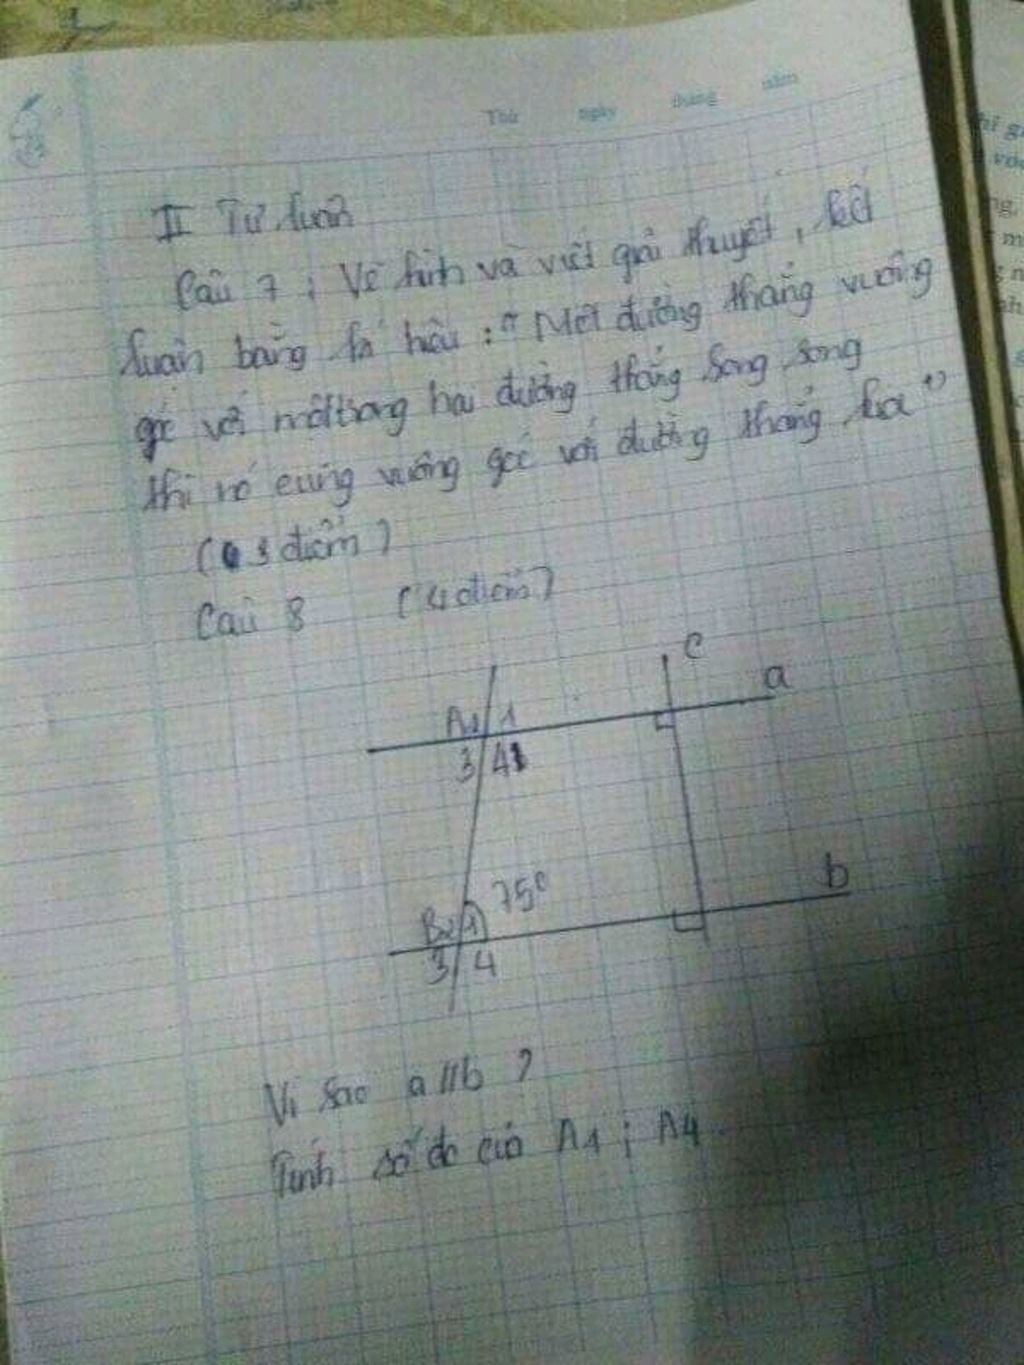 Thứ ngày tháng năm
II Tự luận
Câu 7 : Vẽ hình và viết giải thuyết, kết
luận bằng kí hiệu : "Một đường thẳng vuông
góc với một trong hai đường thẳng song song
thì nó cũng vuông góc với đường thẳng kia"
(3 điểm)
Câu 8 (4 điểm)
c
a
A2 1
3 4
75°
b
B2 1
3 4
Vì sao a//b ?
Tính số đo của A1 ; A4